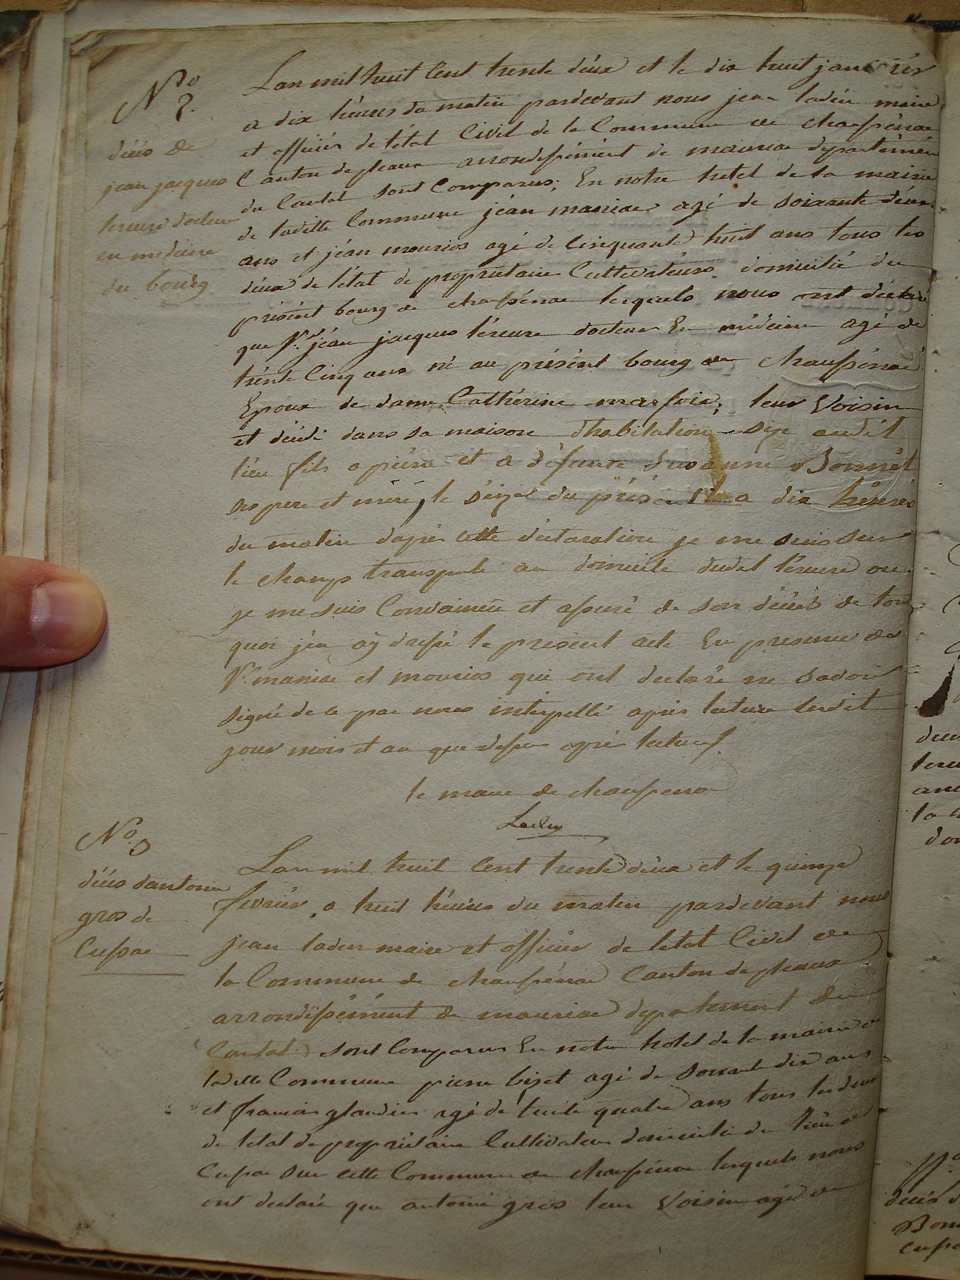 No 2.
décés de
jean jacques
lereure docteur
en médécine
du bourg
Lan mil huit Cent trente déux et le dix huit janvier
a dix héures du matin pardevant nous jean ladeu maire
et officiér de létat Civil de la Commune de chaussénac
Canton de pleaux arrondissément de mauriac départemént
du Cantal sont Comparus; En notre hotel de la mairie
de ladite Commune jéan maniac agé de soixante déux
ans et jéan mourios agé de Cinquante huit ans tous les
déux de létat de propriétaire Cultivateurs domicilié du
présent bourg de chaussénac lesquels nous ont déclaré
que Sr. jéan jacques léreure docteur En médécine agé de
trénte Cinq ans né au présént bourg de chaussénac
Epoux de dame Cathérine ; leur Voisin
et décédé dans sa maison dhabitation audit
lieu fils a piérre et a défunte Susanne Bonnét
ses pere et méré, le séize du présent a dix héurés
du matin daprés cette déclaration je me suis sur
le champs transporté au domicile dudit léreure ou
je me suis Convaincu et assuré de son décés de tout
quoi jén aÿ dressé le présent acte En presence des
Sr. maniac et mourios qui ont declaré ne savoir
signé de ce par nous intérpellé aprés lecture lesdit
jour mois et an que dessus apré lecture
le maire de chaussenac
Ladeu
No 3
décés dantoine
gros de
Cussac
Lan mil huit Cent trente déux et le quinze
fevriér a huit héures du matin pardevant nous
jean ladeu maire et officiér de létat Civil de
la Commune de chaussénac Canton de pleaux
arrondissémént de mauriac département du
Cantal sont Comparus En notre hotel de la mairie de
ladite Commune pierre bizet agé de soixant dix ans
et francois glandier agé de trente quatre ans tous les deux
de létat de propriétaire Cultivateur domicilié du liéu de
Cussac sur cette Commune de chaussénac lesquels nous
ont declaré que antoine gros leur Voisin agé de